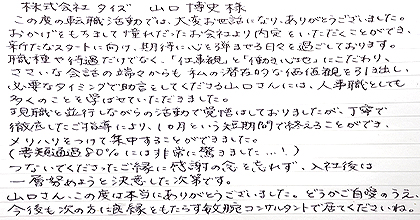 株式会社タイズ 山口博史様
この度の転職活動では、大変お世話になり、ありがとうございました。
おかげをもちまして憧れだったお会社より内定をいただくことができ、
新たなスタートに向け、期待に心を弾ませる日々を過ごしております。
職種や待遇だけでなく、「仕事観」と「働き心地」にこだわり、
ささいな会話の端々からも私の潜在的な価値観を引き出し、
必要なタイミングで助言をしてくださる山口さんには、人事職としても
多くのことを学ばせていただきました。
現職と並行しながらの活動で覚悟はしておりましたが、丁寧で
徹底したご指導により、1ヵ月という短期間で終えることができ、
メリハリをつけて集中することができました。
(書類通過80%には非常に驚きました…!)
つないでくださったご縁に感謝の念を忘れず、入社後は
一層努めようと決意した次第です。
山口さん、この度は本当にありがとうございました。どうかご自愛のうえ、
今後も次の方に良縁をもたらす敏腕コンサルタントで居てくださいね。